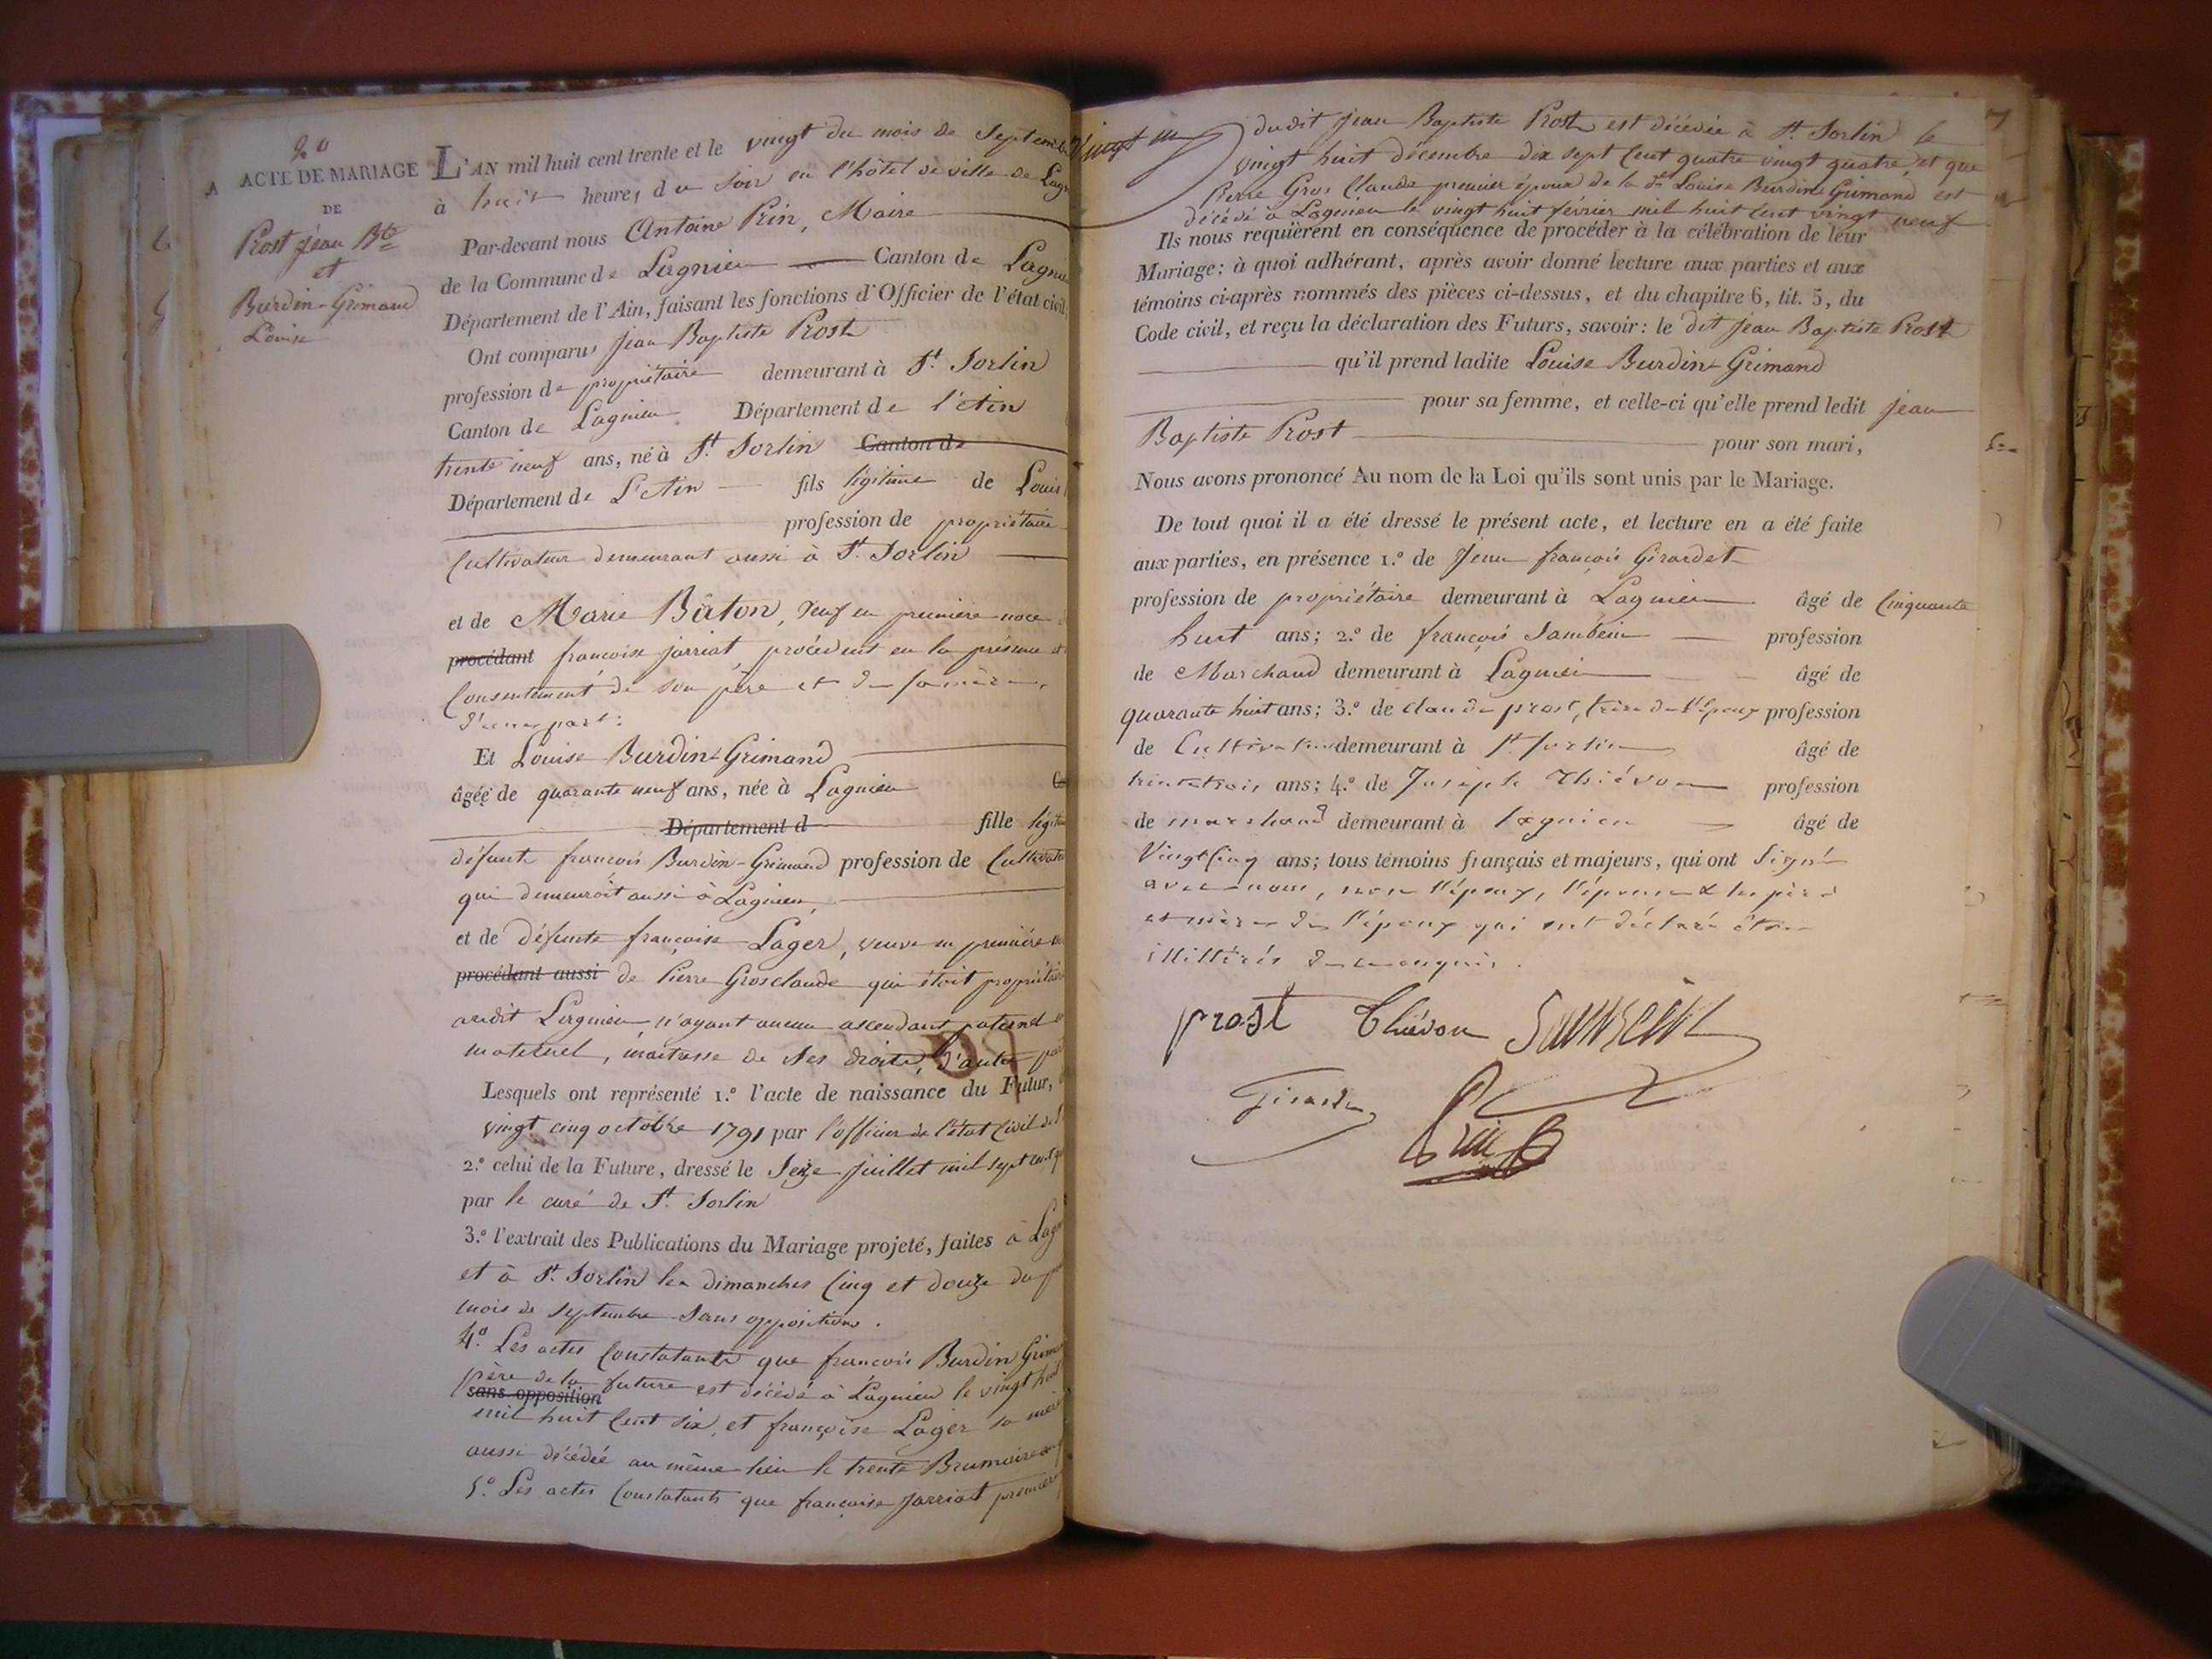 20
ACTE DE MARIAGE
DE
Prost jean Bte
et
Burdin-Grimand
Louise
L'AN mil huit cent trente et le vingt du mois de Septembre
à huit heures du soir en l'hôtel de ville de Lagn
Par-devant nous Antoine Prin, Maire
de la Commune de Lagnieu Canton de Lagnieu
Département de l'Ain, faisant les fonctions d'Officier de l'état civil,
Ont comparus jean Baptiste Prost
profession de propriétaire demeurant à St. Sorlin
Canton de Lagnieu Département de l'Ain
trente neuf ans, né à St. Sorlin Canton de
Département de L'Ain fils légitime de Louis
profession de propriétaire
Cultivateur demeurant aussi à St. Sorlin
et de Marie Bâton, veuf en première noce
procédant françoise jarriat, procédent en la présence et
Consentement de son père et de sa mère,
d'une part:
Et Louise Burdin-Grimand
âgée de quarante neuf ans, née à Lagnieu
Département d fille légit
défunt françois Burdin-Grimand profession de Cultivate
qui demeuroit aussi à Lagnieu,
et de défunte françoise Lager, veuve en première
procédant aussi de Pierre Grosclaude qui étoit propriétaire
audit Lagnieu, n'ayant aucun ascendant paternel
maternel, maitresse de ses droits, d'autre part
Lesquels ont représenté 1.° l'acte de naissance du Futur,
vingt cinq octobre 1791 par l'officier de l'état Civil de
2.° celui de la Future, dressé le Seize juillet mil sept cent
par le curé de St. Sorlin
3.° l'extrait des Publications du Mariage projeté, faites à Lag
et à St. Sorlin les dimanches Cinq et douze du
mois de septembre Sans oppositions.
4.° Les actes Constatants que françois Burdin Grim
père de la future est décédé à Lagnieu le vingt
sans opposition
mil huit Cent six, et françoise Lager sa mère
aussi décédée au même lieu le trente Brumaire
5.° Les actes Constatants que françoise Jarriat première
dudit jean Baptiste Prost est décédée à St. Sorlin le
vingt huit décembre dix sept Cent quatre vingt quatre, et que
Pierre Gros Claude premier époux de la dte Louise Burdin Grimand est
décédé à Lagnieu le vingt huit février mil huit Cent vingt neuf
Ils nous requièrent en conséquence de procéder à la célébration de leur
Mariage; à quoi adhérant, après avoir donné lecture aux parties et aux
témoins ci-après nommés des pièces ci-dessus, et du chapitre 6, tit. 5, du
Code civil, et reçu la déclaration des Futurs, savoir: le dit jean Baptiste Prost
qu'il prend ladite Louise Burdin-Grimand
pour sa femme, et celle-ci qu'elle prend ledit jean
Baptiste Prost pour son mari,
Nous avons prononcé Au nom de la Loi qu'ils sont unis par le Mariage.
De tout quoi il a été dressé le présent acte, et lecture en a été faite
aux parties, en présence 1.° de Jean françois Girardet
profession de propriétaire demeurant à Lagnieu âgé de Cinquante
huit ans; 2.° de françois Sambein profession
de Marchand demeurant à Lagnieu âgé de
quarante huit ans; 3.° de claude prost, frère de l'époux profession
de Cultivateur demeurant à St Sorlin âgé de
trente trois ans; 4.° de Joseph Thiévon profession
de marchand demeurant à Lagnieu âgé de
Vingt Cinq ans; tous témoins français et majeurs, qui ont Signé
avec nous, non l'époux, l'épouse & les père
et mère de l'époux qui ont déclaré être
illitérés de ce enquis.
prost Thiévon Sambein
Girardet
Prin